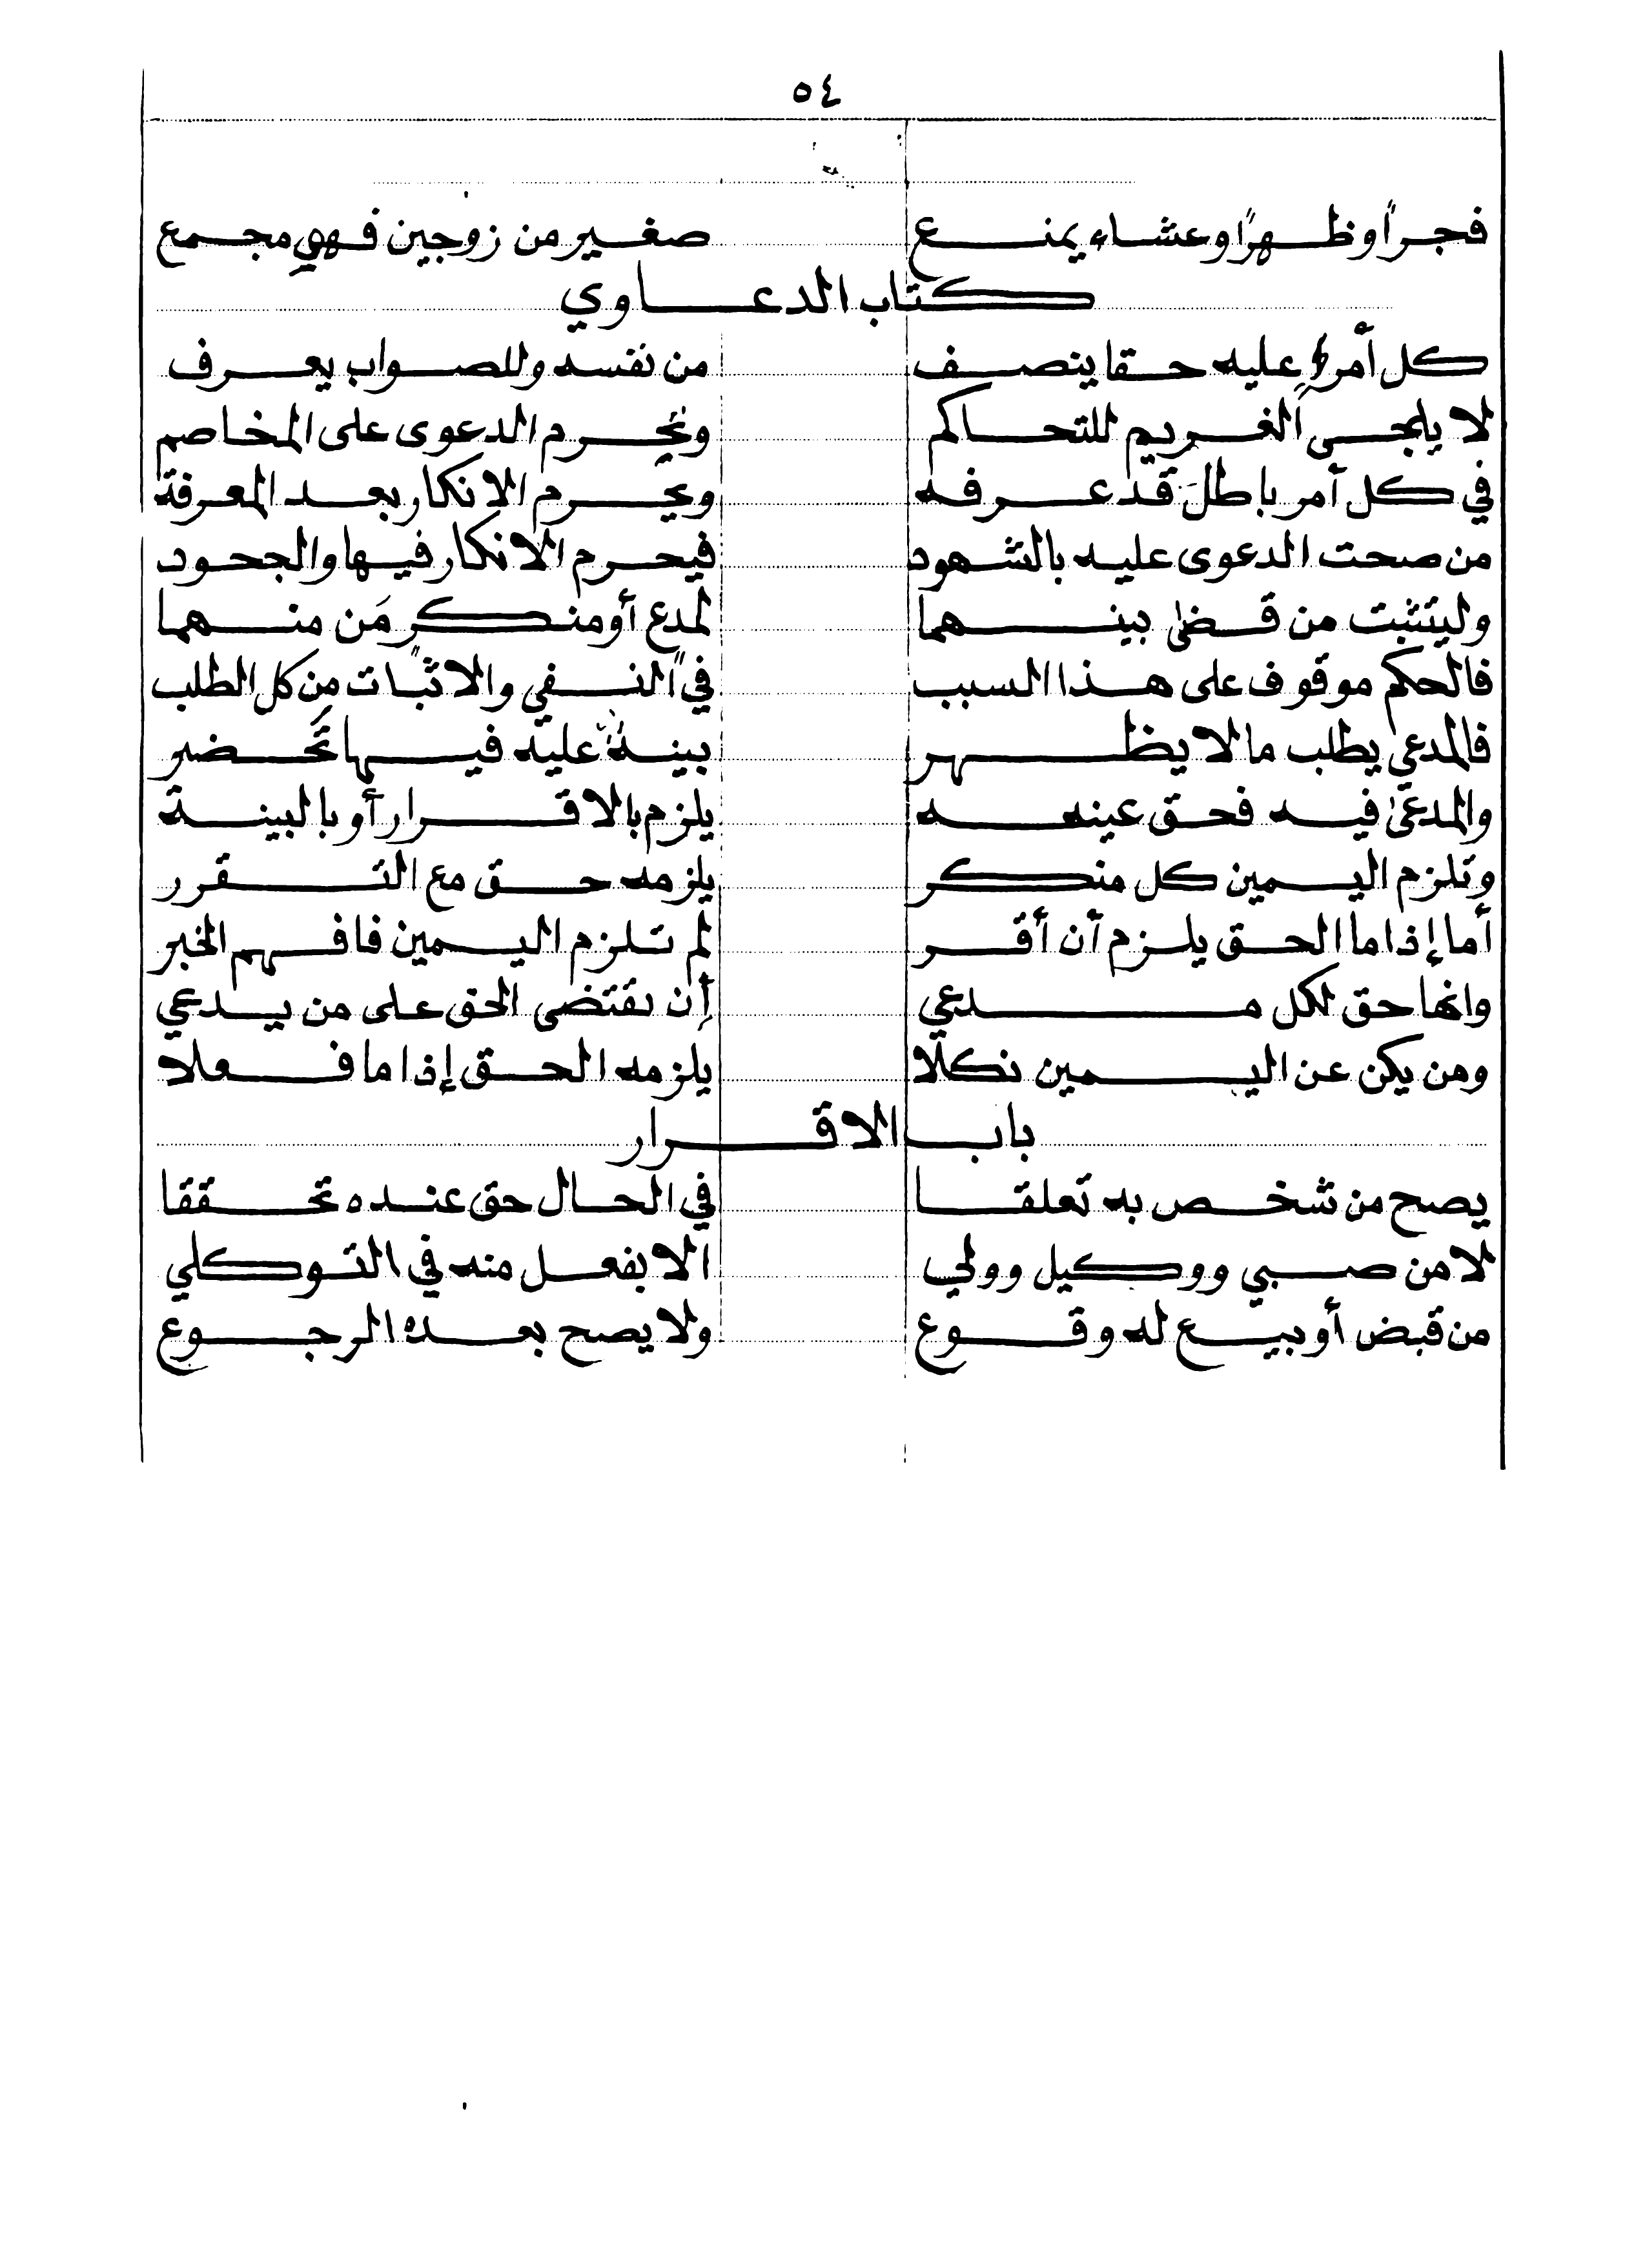 ٥٤
فجراً وظهراً وعشاء يمنع صغير من زوجين فهي مجمع
كتاب الدعاوي
كل أمرﺉٍ عليه حقا ينصف من نفسه وللصواب يعرف
لا يلجىء الغريم للتحاكم وتحرم الدعوى على المخاصم
في كل أمر باطل قد عرفه ويحرم الانكار بعد المعرفة
من صحت الدعوى عليه بالشهود فيحرم الانكار فيها والجحود
وليتثبت من قضى بينهما لمدع أو منكر مَن منهما
فالحكم موقوف على هذا السبب في النفي والاثبات من كل الطلب
فالمدعي يطلب ما لا يظهر بينة عليه فيها تَحضر
والمدعىٰ فيه فحق عينه يلزم بالاقرار أو بالبينة
وتلزم اليمين كل منكر يلزمه حق مع التقرر
أما إذا ما الحق يلزم أن أقر لم تلزم اليمين فافهم الخبر
وانها حق لكل مدعي أن يقتضى الحق على من يدعي
ومن يكن عن اليمين نكلا يلزمه الحق إذا ما فعلا
باب الاقرار
يصح من شخص به تعلقا في الحال حق عنده تحققا
لا من صبي ووكيل وولي الا بفعل منه في التوكلي
من قبض أو بيع له وقوع ولا يصح بعده الرجوع